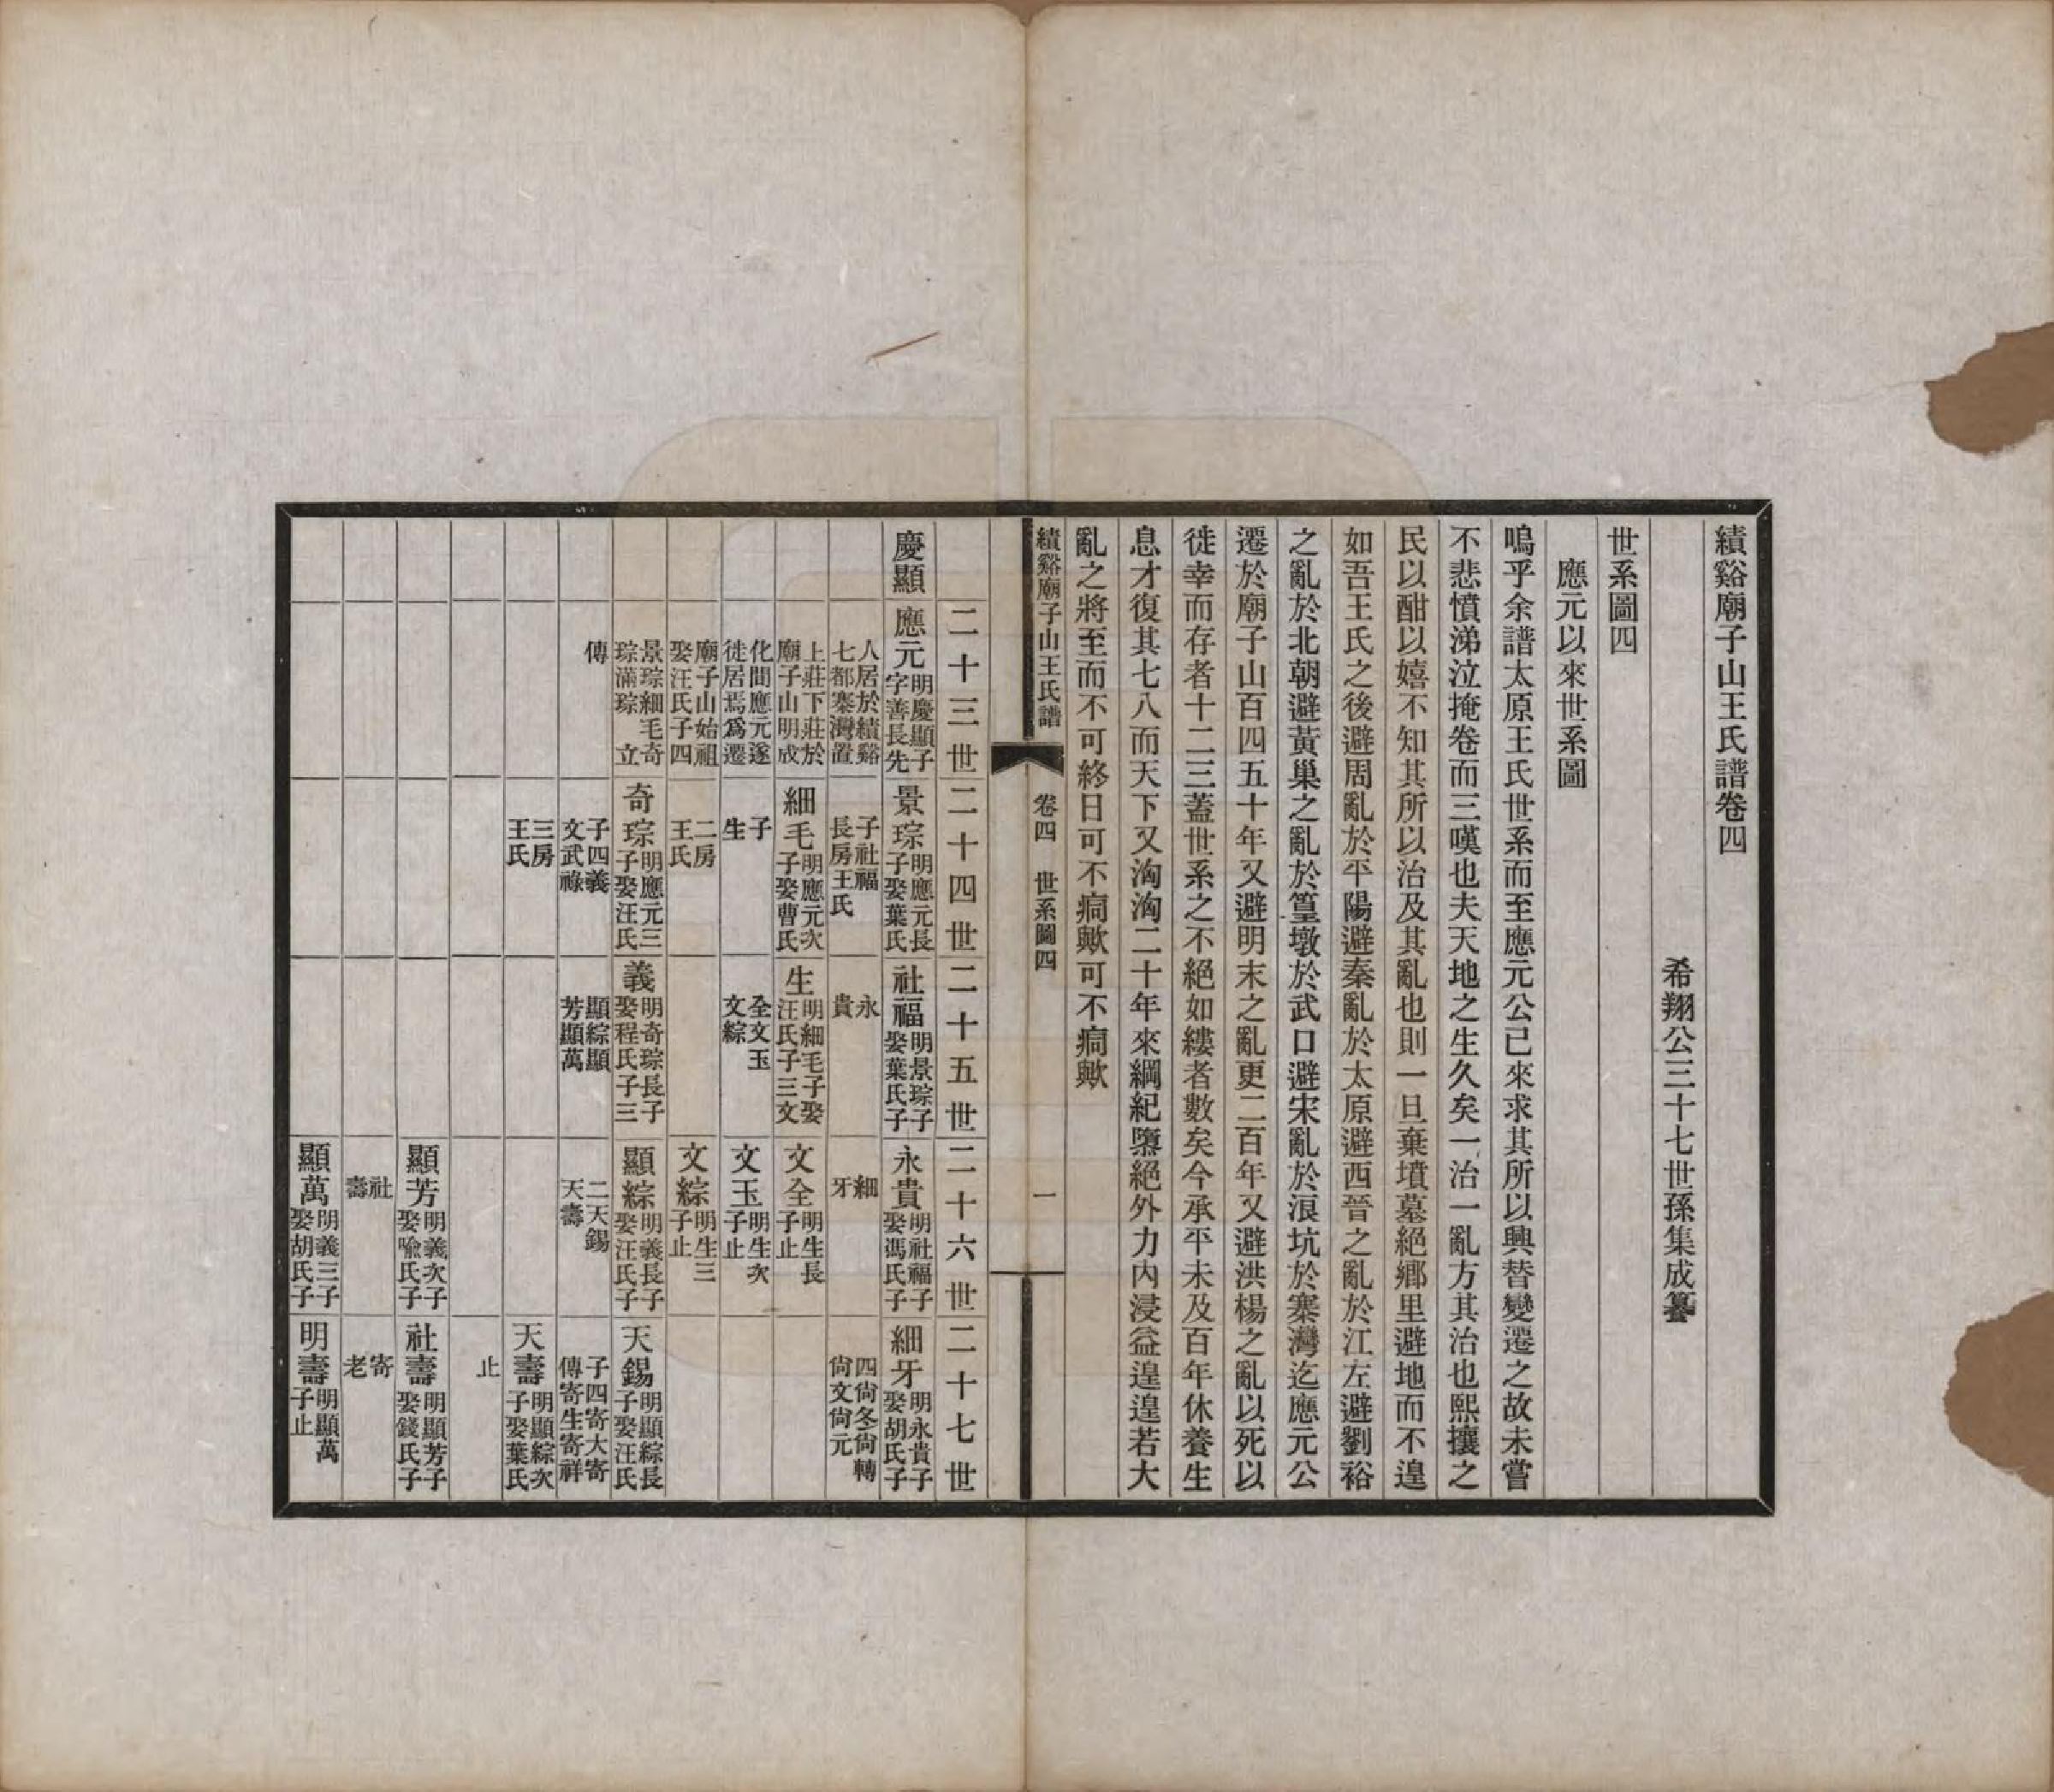 績谿廟子山王氏譜卷四
希翔公三十七世孫集成纂
世系圖四
應元以來世系圖
嗚乎余譜太原王氏世系而至應元公已來求其所以興替變遷之故未嘗
不悲憤涕泣掩卷而三嘆也夫天地之生久矣一治一亂方其治也熙攘之
民以酣以嬉不知其所以治及其亂也則一旦棄墳墓絕鄉里避地而不遑
如吾王氏之後避周亂於平陽避秦亂於太原避西晉之亂於江左避劉裕
之亂於北朝避黃巢之亂於篁墩於武口避宋亂於浪坑於寨灣迄應元公
遷於廟子山百四五十年又避明末之亂更二百年又避洪楊之亂以死以
徙幸而存者十二三蓋世系之不絕如縷者數矣今承平未及百年休養生
息才復其七八而天下又洶洶二十年來綱紀隳絕外力內浸益遑遑若大
亂之將至而不可終日可不痌歟可不痌歟
績谿廟子山王氏譜 卷四 世系圖四 一
二十三世 二十四世 二十五世 二十六世 二十七世
慶顯
應元 明慶顯子 字善長先
景琮 明應元長 子娶葉氏
社福 明景琮子 娶葉氏子
永貴 明社福子 娶馮氏子
細牙 明永貴子 娶胡氏子
人居於績谿 七都寨灣置
子社福 長房王氏
永 貴
細 牙
四尙冬尙轉 尙文尙元
上莊下莊於 廟子山明成
細毛 明應元次 子娶曹氏
生 明細毛子娶 汪氏子三文
文全 明生長 子止
化間應元遂 徙居焉爲遷
子 生
全文玉 文綜
文玉 明生次 子止
廟子山始祖 娶汪氏子四
二房 王氏
文綜 明生三 子止
景琮細毛奇 琮滿琮 立
奇琮 明應元三 子娶汪氏
義 明奇琮長子 娶程氏子三
顯綜 明義長子 娶汪氏子
天錫 明顯綜長 子娶汪氏
傳
子四義 文武祿
顯綜顯 芳顯萬
二天錫 天壽
子四寄大寄 傳寄生寄祥
三房 王氏
天壽 明顯綜次 子娶葉氏
止
顯芳 明義次子 娶喻氏子
社壽 明顯芳子 娶錢氏子
社 壽
寄 老
顯萬 明義三子 娶胡氏子
明壽 明顯萬 子止